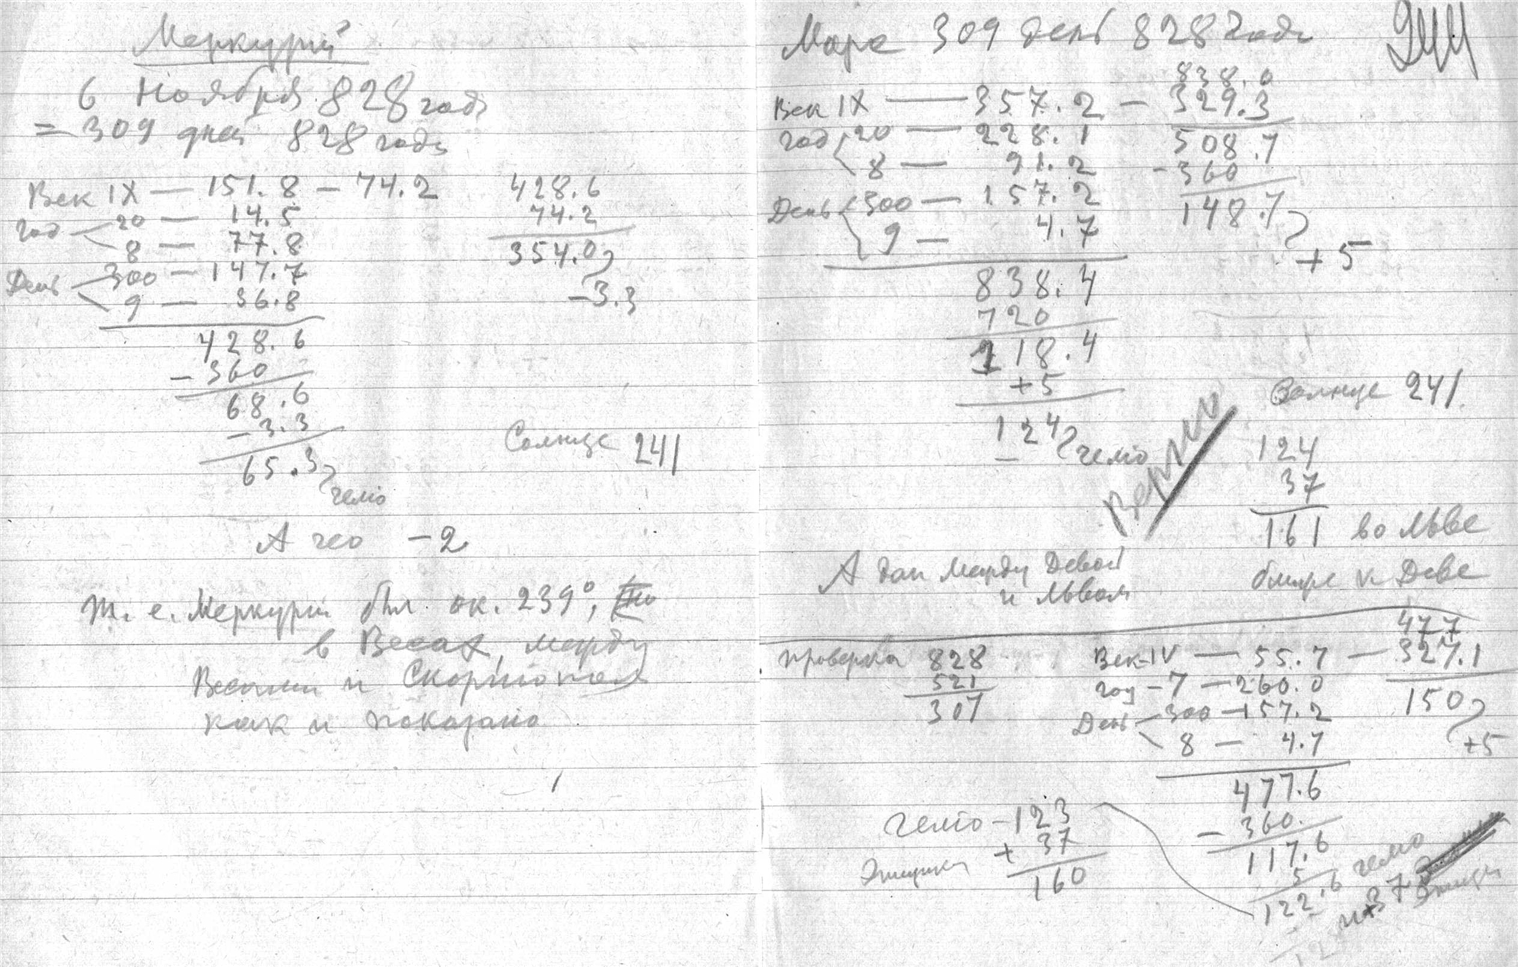 Меркурий
6 Ноября 828 года
= 309 дней 828 года
Век IX — 151.8 — 74.2
год 20 — 14.5
8 — 77.8
День 300 — 147.7
9 — 36.8
428.6
- 360
68.6
- 3.3
65.3
гелио
428.6
74.2
354.0
-3.3
Солнце 241
А гео -2
т. е. Меркурий был ок. 239°,
в Весах, между
Весами и Скорпионом
как и показано
Марс 309 день 828 года
Век IX — 357.2 — 329.3
год 20 — 228.1
8 — 91.2
День 300 — 157.2
9 — 4.7
838.4
720
118.4
+5
124
гелио
838.0
329.3
508.7
-360
148.7
+5
Верно
Солнце 241
124
37
161 во Льве
ближе к Деве
А дан между Девой
и Львом
проверка 828
521
307
Век IV — 55.7 — 327.1
год - 7 — 260.0
День 300 — 157.2
8 — 4.7
477.6
- 360.
117.6
5
122.6 гелио
477
327.1
150
+5
гелио - 123
+ 37
160